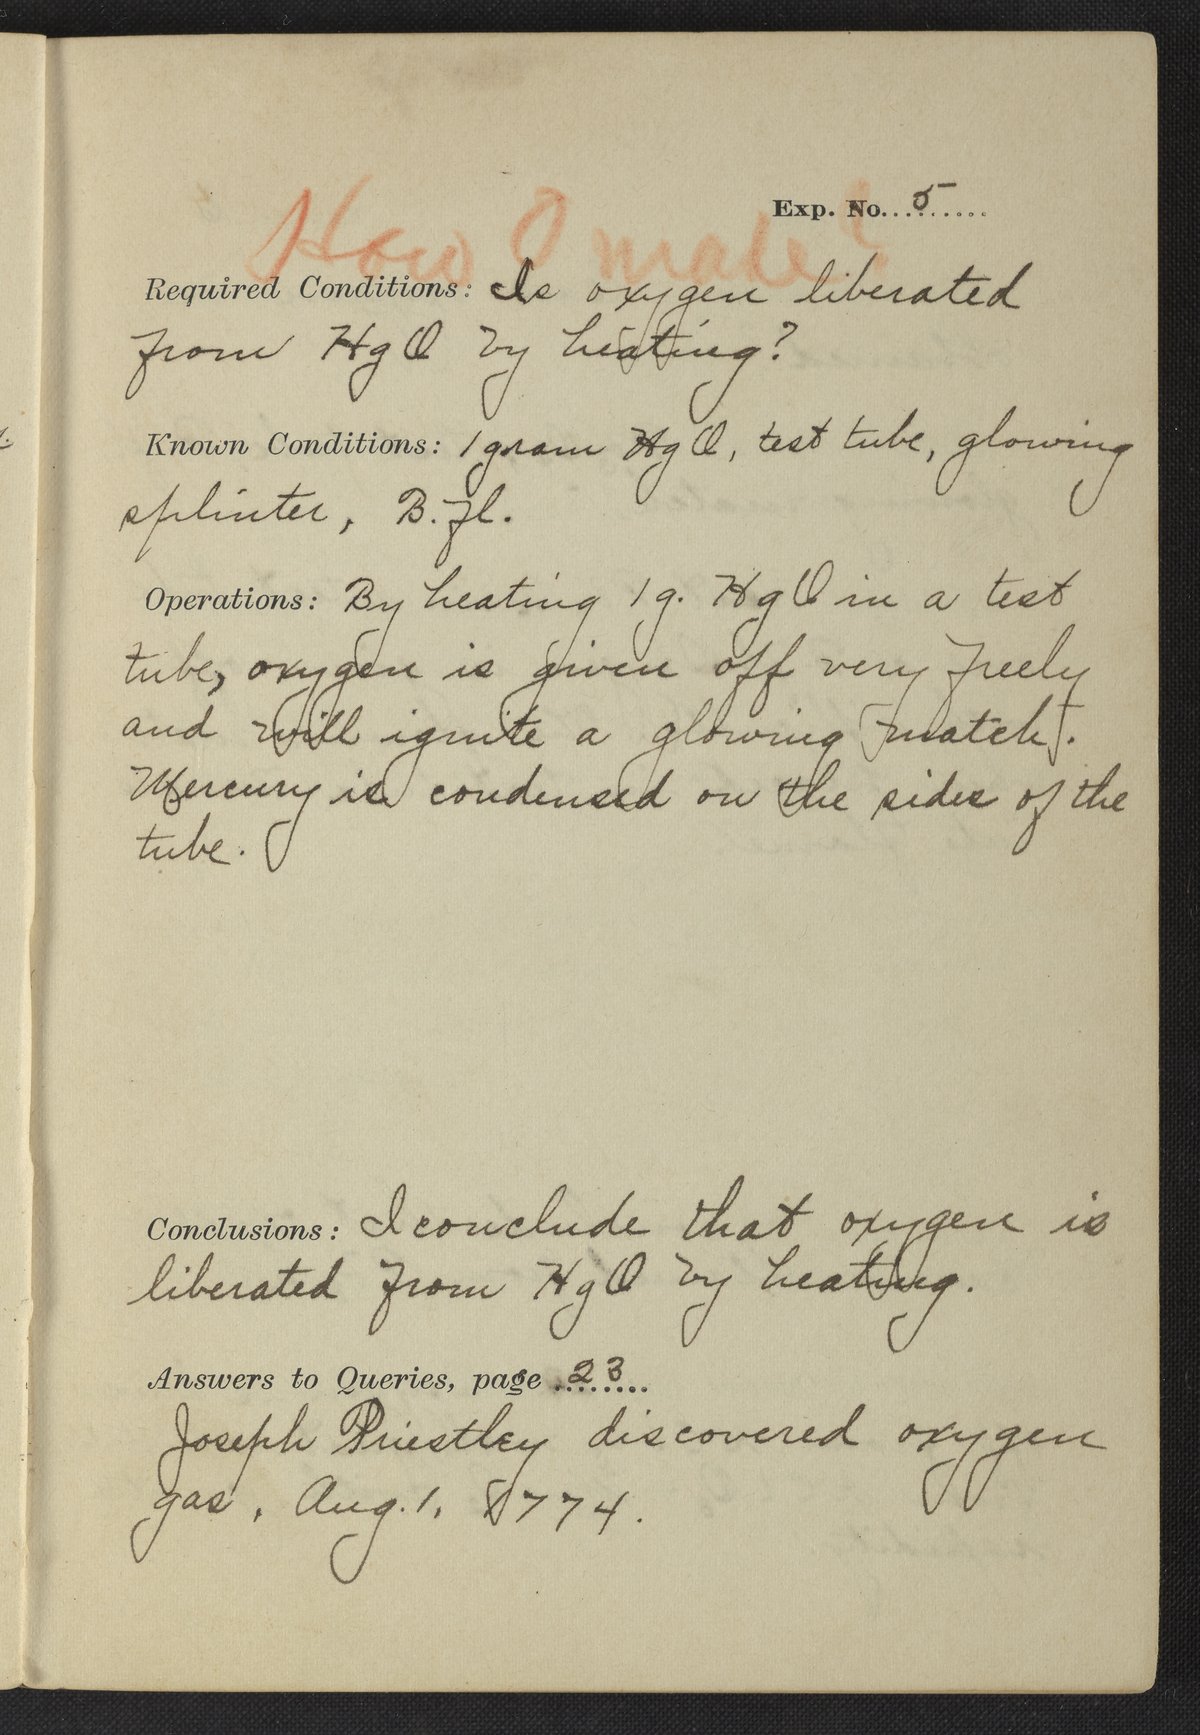 Exp. No. 5
How O made?
Required Conditions: Is oxygen liberated
from HgO by heating?
Known Conditions: 1 gram HgO, test tube, glowing
splinter, B. fl.
Operations: By heating 1 g. HgO in a test
tube, oxygen is given off very freely
and will ignite a glowing match.
Mercury is condensed on the sides of the
tube.
Conclusions: I conclude that oxygen is
liberated from HgO by heating.
Answers to Queries, page 23
Joseph Priestley discovered oxygen
gas, Aug. 1, 1774.